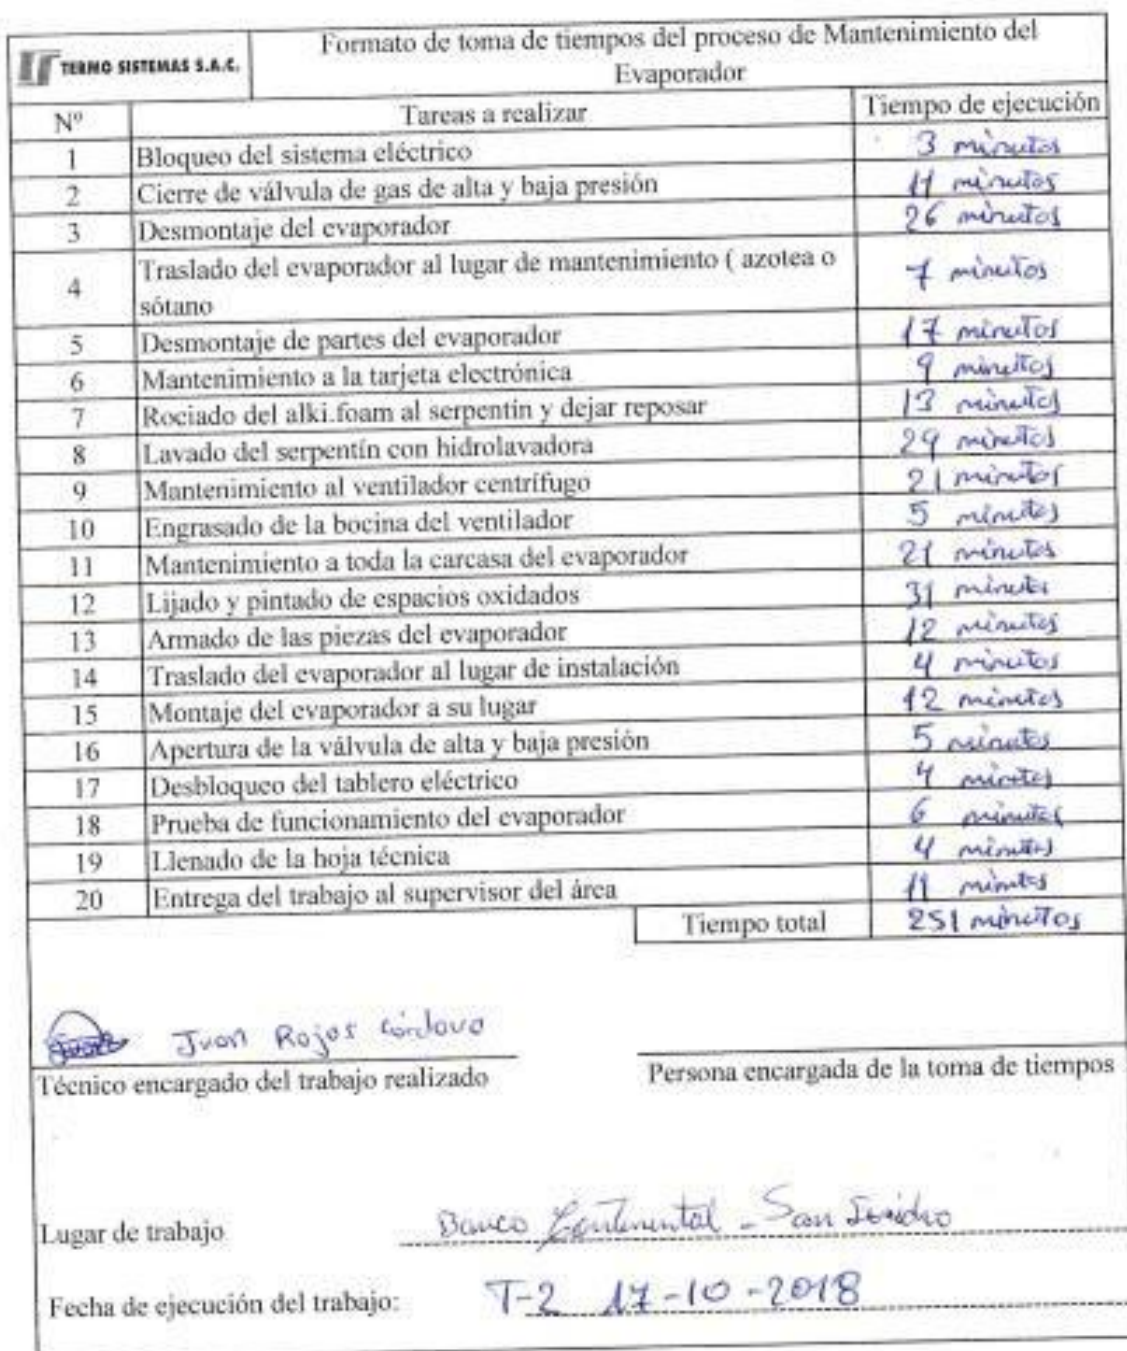 TERMO SISTEMAS S.A.C.
Formato de toma de tiempos del proceso de Mantenimiento del
Evaporador
Nº Tareas a realizar Tiempo de ejecución
1 Bloqueo del sistema eléctrico 3 minutos
2 Cierre de válvula de gas de alta y baja presión 11 minutos
3 Desmontaje del evaporador 26 minutos
4 Traslado del evaporador al lugar de mantenimiento ( azotea o
sótano 7 minutos
5 Desmontaje de partes del evaporador 17 minutos
6 Mantenimiento a la tarjeta electrónica 9 minutos
7 Rociado del alki.foam al serpentín y dejar reposar 13 minutos
8 Lavado del serpentín con hidrolavadora 29 minutos
9 Mantenimiento al ventilador centrífugo 21 minutos
10 Engrasado de la bocina del ventilador 5 minutos
11 Mantenimiento a toda la carcasa del evaporador 21 minutos
12 Lijado y pintado de espacios oxidados 31 minutos
13 Armado de las piezas del evaporador 12 minutos
14 Traslado del evaporador al lugar de instalación 4 minutos
15 Montaje del evaporador a su lugar 12 minutos
16 Apertura de la válvula de alta y baja presión 5 minutos
17 Desbloqueo del tablero eléctrico 4 minutos
18 Prueba de funcionamiento del evaporador 6 minutos
19 Llenado de la hoja técnica 4 minutos
20 Entrega del trabajo al supervisor del área 11 minutos
Tiempo total 251 minutos
Juan Rojas Córdova
Técnico encargado del trabajo realizado
Persona encargada de la toma de tiempos
Lugar de trabajo Banco Continental - San Isidro
Fecha de ejecución del trabajo: T-2 17-10-2018